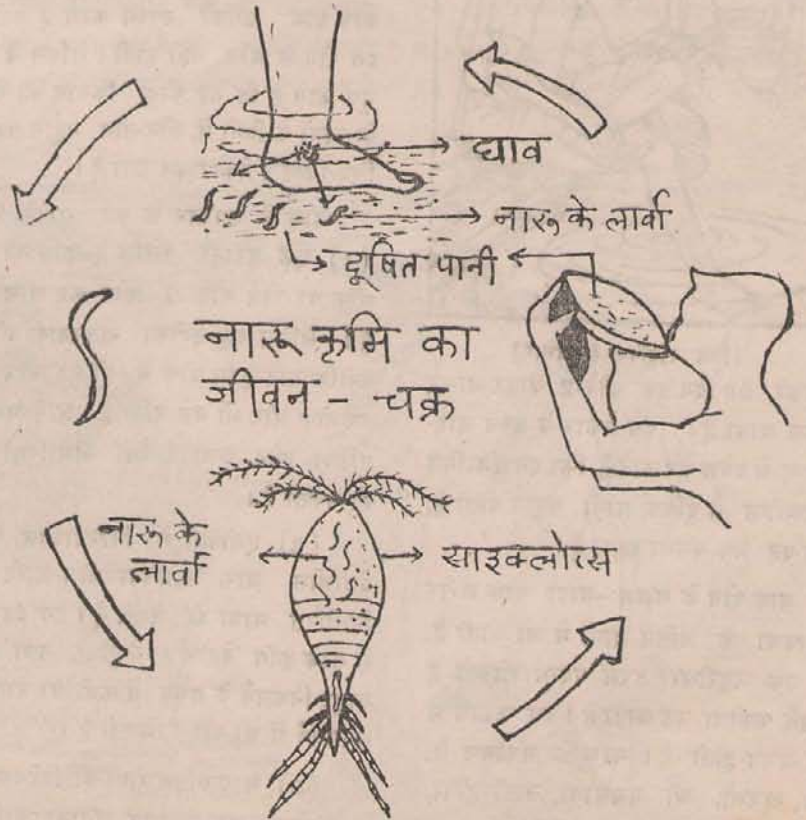 घाव
नारु के लार्वा
दूषित पानी
नारू कृमि का
जीवन - चक्र
नारू के
लार्वा
साइक्लोप्स